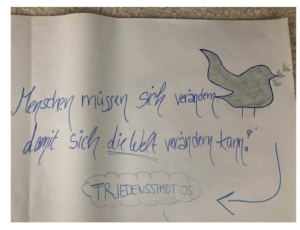 Menschen müssen sich verändern
damit sich die Welt verändern kann!
FRIEDENSSTADT OS.